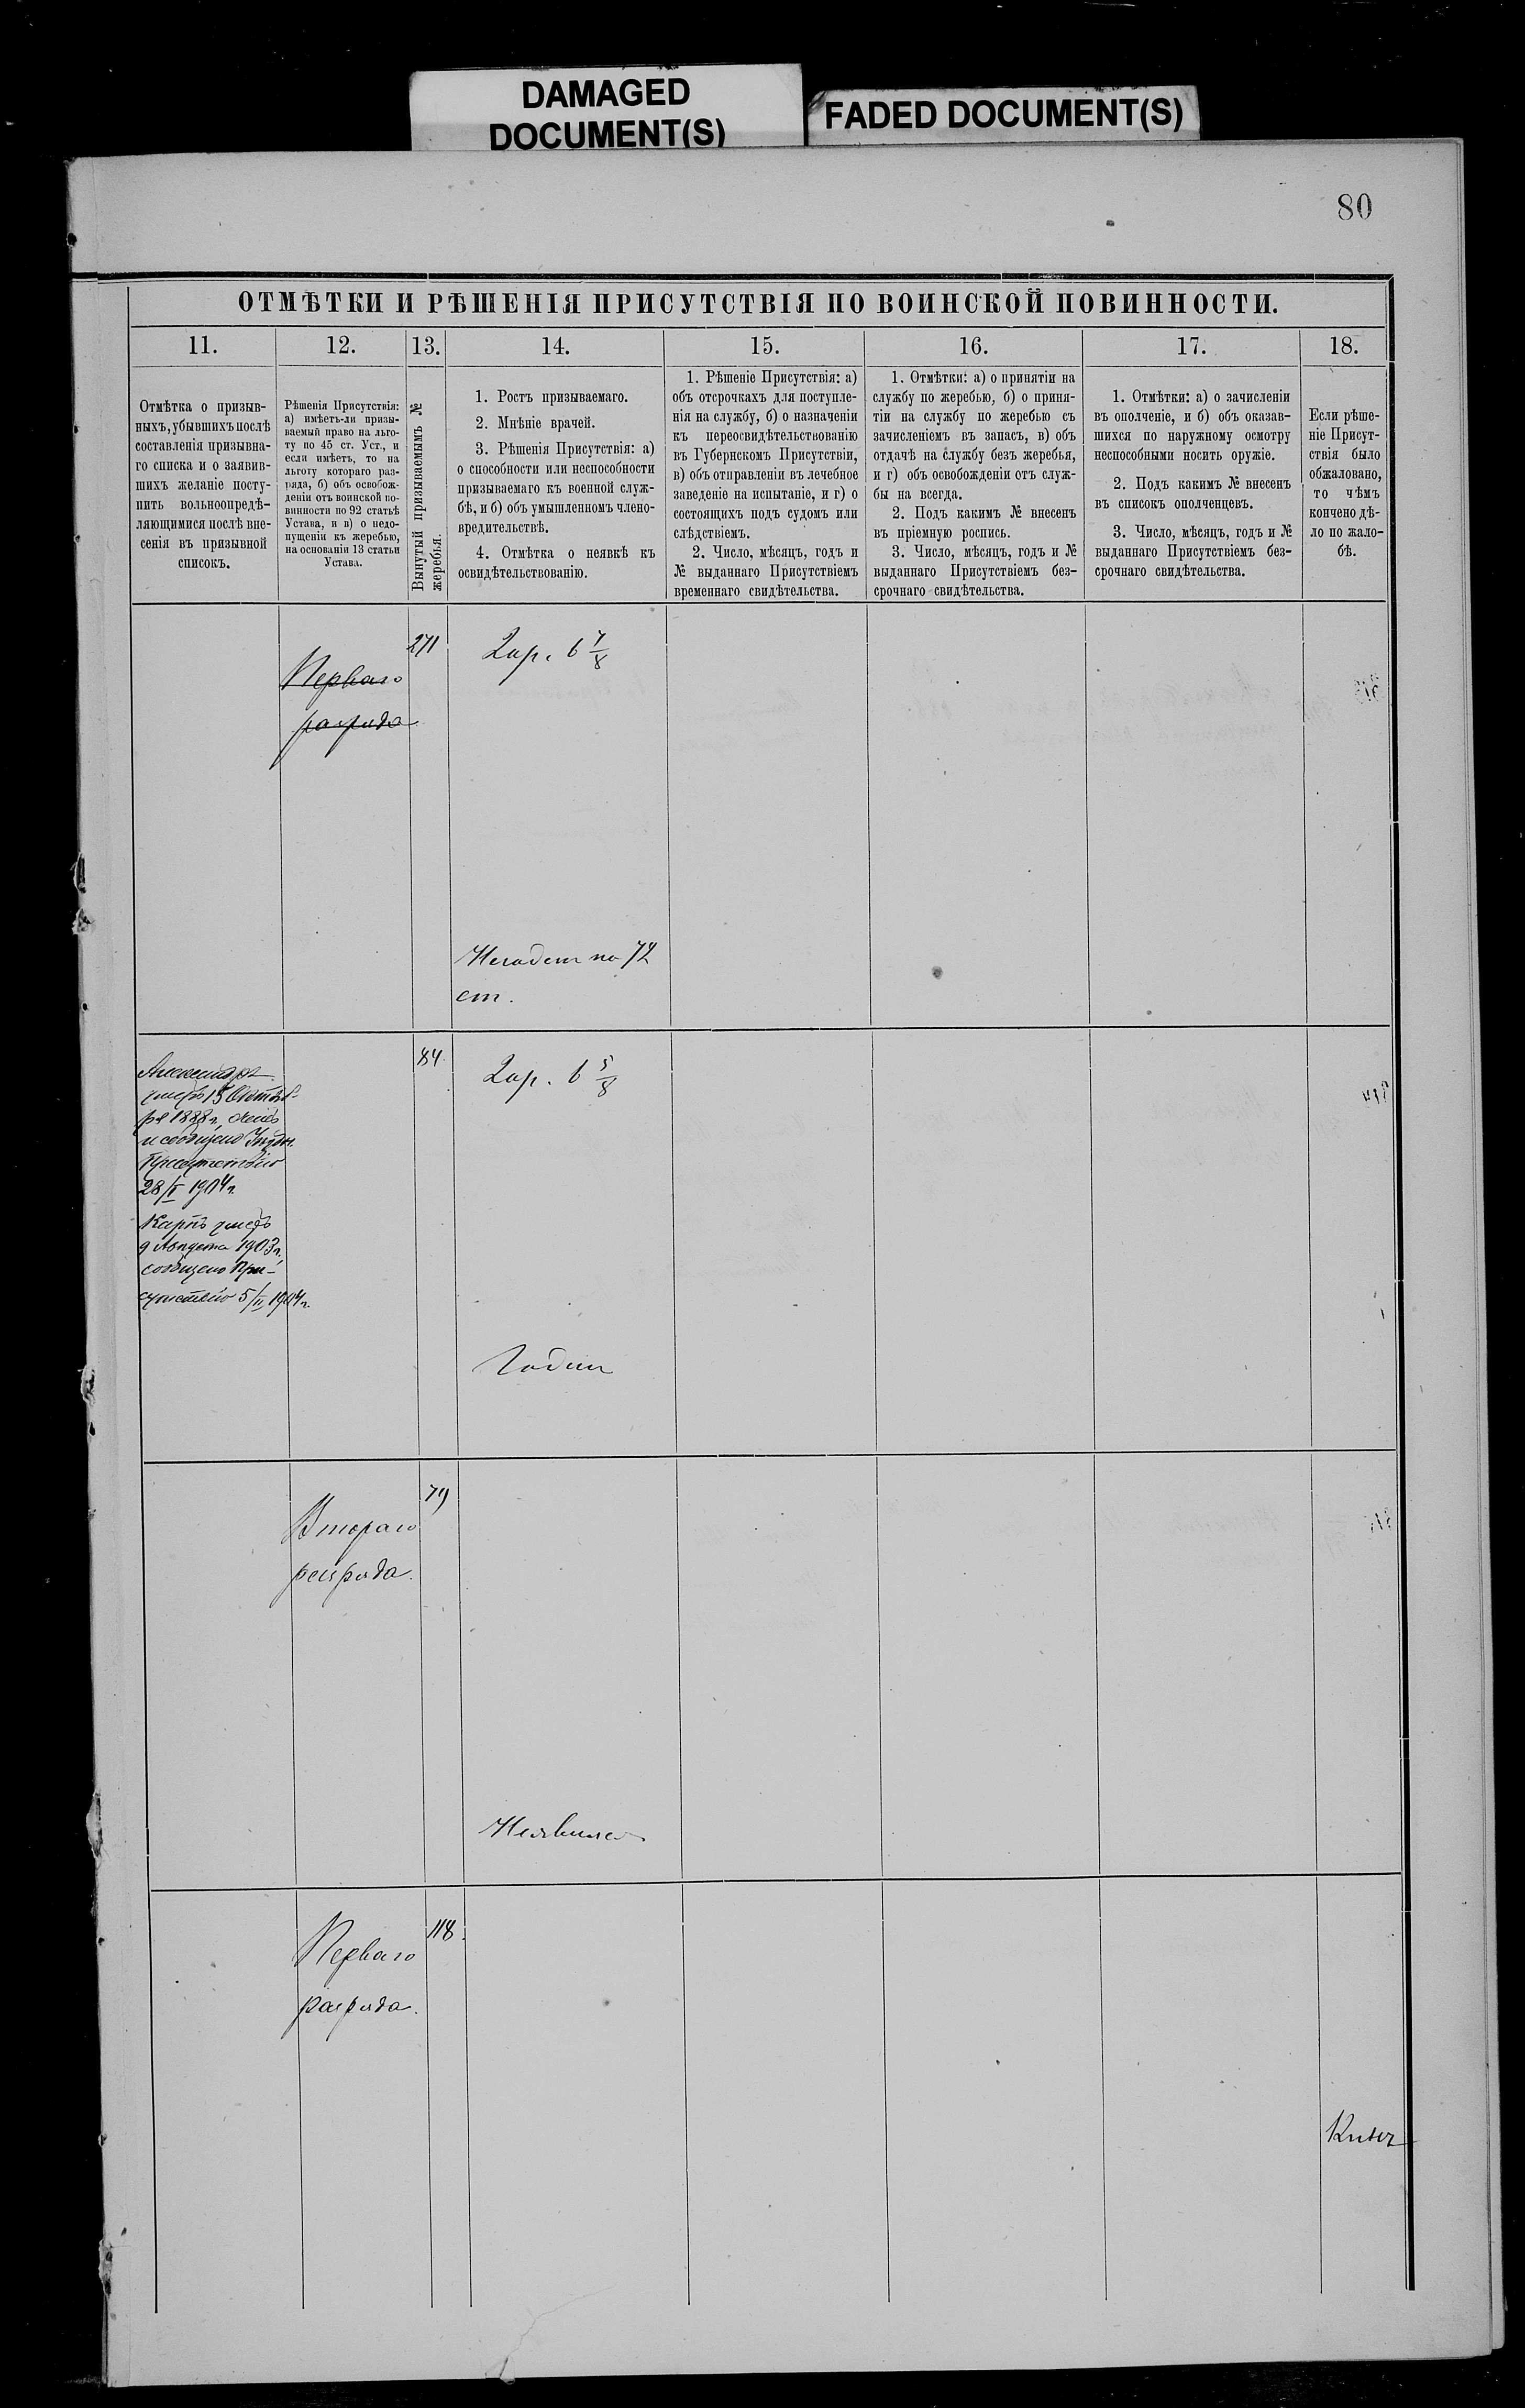 DAMAGED
DOCUMENT(S)
FADED DOCUMENT(S)
80
ОТМѢТКИ И РѢШЕНІЯ ПРИСУТСТВІЯ ПО ВОИНСКОЙ ПОВИННОСТИ.
11.
12.
13.
14.
15.
16.
17.
18.
Отмѣтка о призыв-
ныхъ, убывшихъ послѣ
составленія призывна-
го списка и о заявив-
шихъ желаніе посту-
пить вольноопредѣ-
ляющимися послѣ вне-
сенія въ призывной
списокъ.
Рѣшенія Присутствія:
а) имѣетъ-ли призы-
ваемый право на льго-
ту по 45 ст. Уст., и
если имѣетъ, то на
льготу котораго раз-
ряда, б) объ освобож-
деніи отъ воинской по-
винности по 92 статьѣ
Устава, и в) о недо-
пущеніи къ жеребью,
на основаніи 13 статьи
Устава.
Вынутый призываемымъ №
жеребья.
1. Ростъ призываемаго.
2. Мнѣніе врачей.
3. Рѣшенія Присутствія: а)
о способности или неспособности
призываемаго къ военной служ-
бѣ, и б) объ умышленномъ члено-
вредительствѣ.
4. Отмѣтка о неявкѣ къ
освидѣтельствованію.
1. Рѣшеніе Присутствія: а)
объ отсрочкахъ для поступле-
нія на службу, б) о назначеніи
къ переосвидѣтельствованію
въ Губернскомъ Присутствіи,
в) объ отправленіи въ лечебное
заведеніе на испытаніе, и г) о
состоящихъ подъ судомъ или
слѣдствіемъ.
2. Число, мѣсяцъ, годъ и
№ выданнаго Присутствіемъ
временнаго свидѣтельства.
1. Отмѣтки: а) о принятіи на
службу по жеребью, б) о приня-
тіи на службу по жеребью съ
зачисленіемъ въ запасъ, в) объ
отдачѣ на службу безъ жеребья,
и г) объ освобожденіи отъ служ-
бы на всегда.
2. Подъ какимъ № внесенъ
въ пріемную роспись.
3. Число, мѣсяцъ, годъ и №
выданнаго Присутствіемъ без-
срочнаго свидѣтельства.
1. Отмѣтки: а) о зачисленіи
въ ополченіе, и б) объ оказав-
шихся по наружному осмотру
неспособными носить оружіе.
2. Подъ какимъ № внесенъ
въ списокъ ополченцевъ.
3. Число, мѣсяцъ, годъ и №
выданнаго Присутствіемъ без-
срочнаго свидѣтельства.
Если рѣше-
ніе Присут-
ствія было
обжаловано,
то чѣмъ
кончено дѣ-
ло по жало-
бѣ.
Перваго
разряда
271
2 ар. 6 7/8
Негоденъ по 72
ст.
Александръ
умеръ 15 Октяб-
ря 1888 г.
и сообщено Уѣздн.
Присутствію
28/I 1904 г.
Карпъ умеръ
9 Августа 1903 г.
сообщено При-
сутствію 5/II 1904 г.
84.
2 ар. 6 5/8
Годенъ
Втораго
разряда.
79
Неявился
Перваго
разряда.
118.